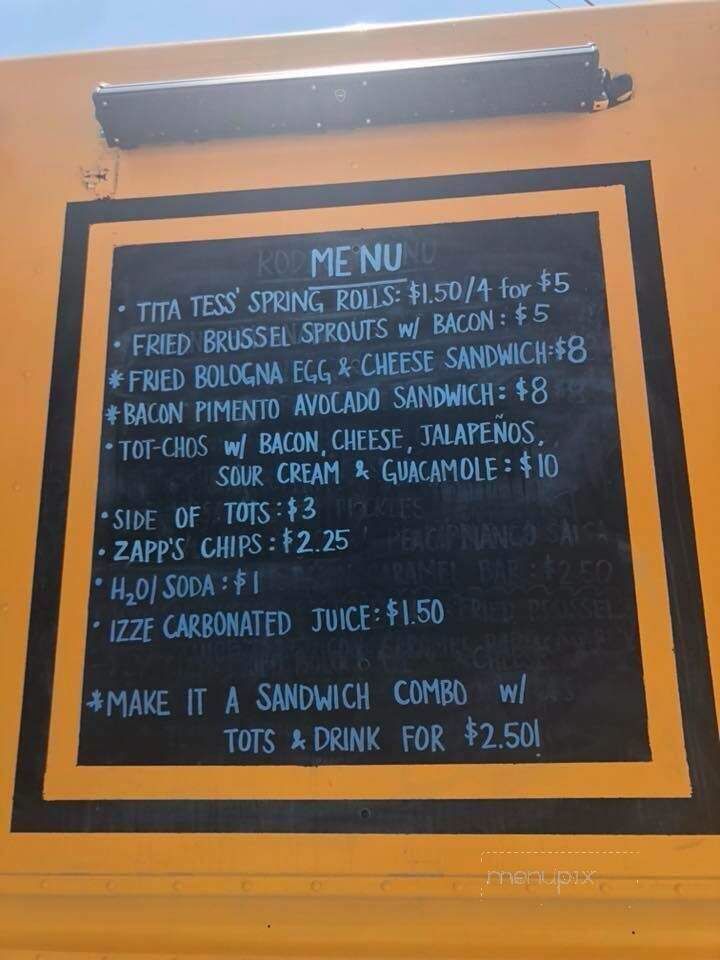 MENU
• TITA TESS' SPRING ROLLS: $1.50/4 for $5
• FRIED BRUSSEL SPROUTS w/ BACON: $5
* FRIED BOLOGNA EGG & CHEESE SANDWICH: $8
* BACON PIMENTO AVOCADO SANDWICH: $8
• TOT-CHOS w/ BACON, CHEESE, JALAPEÑOS,
SOUR CREAM & GUACAMOLE: $10
• SIDE OF TOTS: $3
• ZAPP'S CHIPS: $2.25
• H₂O/SODA: $1
• IZZE CARBONATED JUICE: $1.50
* MAKE IT A SANDWICH COMBO w/
TOTS & DRINK FOR $2.50!
menupix